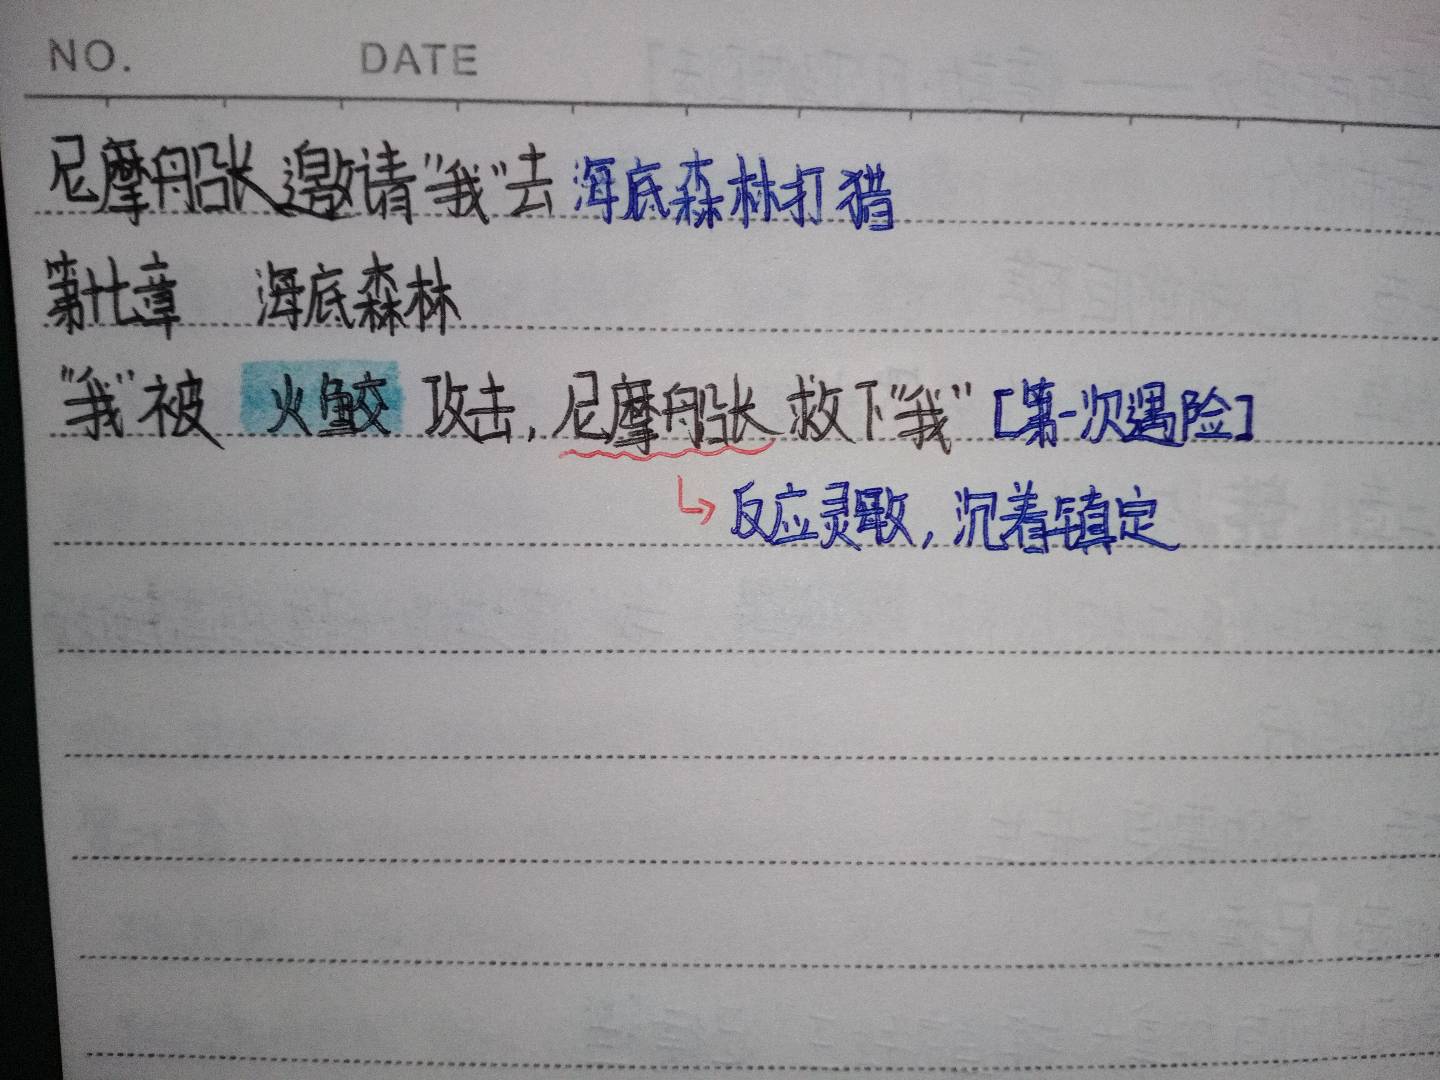 NO. DATE
尼摩船长邀请"我"去海底森林打猎
第十七章 海底森林
"我"被火鲛攻击,尼摩船长救下"我"[第一次遇险]
↳反应灵敏,沉着镇定